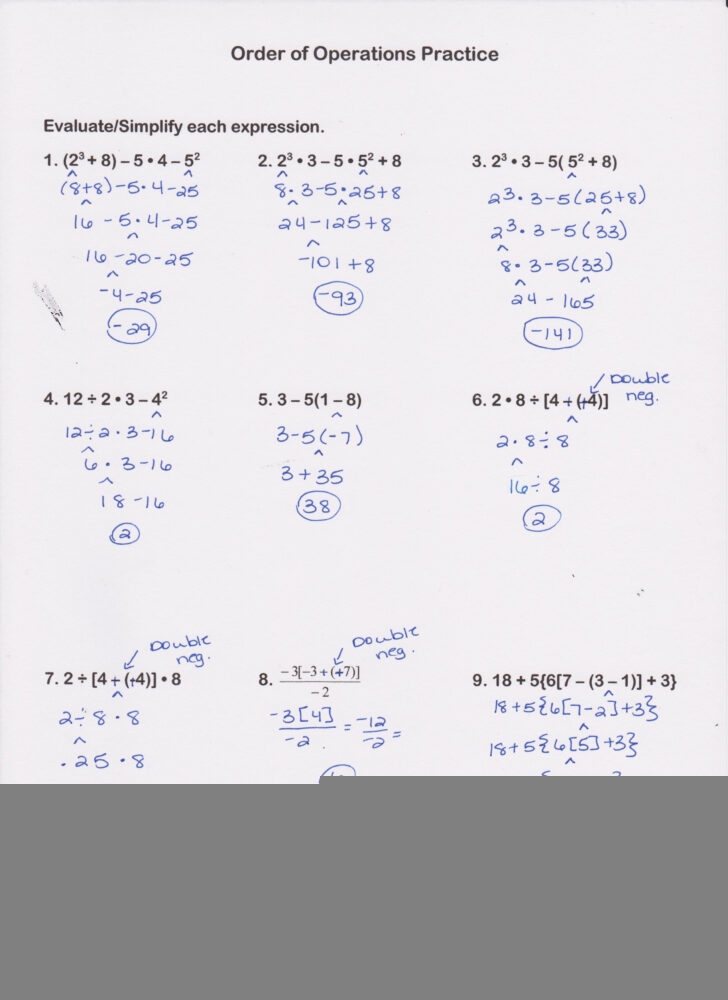 Order of Operations Practice
Evaluate/Simplify each expression.
1. (2³ + 8) – 5 • 4 – 5²
(8+8)-5·4-25
16 - 5·4-25
16 -20-25
-4-25
-29
2. 2³ • 3 – 5 • 5² + 8
8·3-5·25+8
24-125+8
-101+8
-93
3. 2³ • 3 – 5( 5² + 8)
2³·3-5(25+8)
2³·3-5(33)
8·3-5(33)
24 - 165
-141
4. 12 ÷ 2 • 3 – 4²
12÷2·3-16
6·3-16
18-16
2
5. 3 – 5(1 – 8)
3-5(-7)
3+35
38
Double
neg.
6. 2 • 8 ÷ [4 + (+4)]
2·8÷8
16÷8
2
Double
neg.
7. 2 ÷ [4 + (+4)] • 8
2÷8·8
.25·8
Double
neg.
8. –3[–3 + (+7)]
–2
-3[4] = -12 =
-2 -2
9. 18 + 5{6[7 – (3 – 1)] + 3}
18+5{6[7-2]+3}
18+5{6[5]+3}